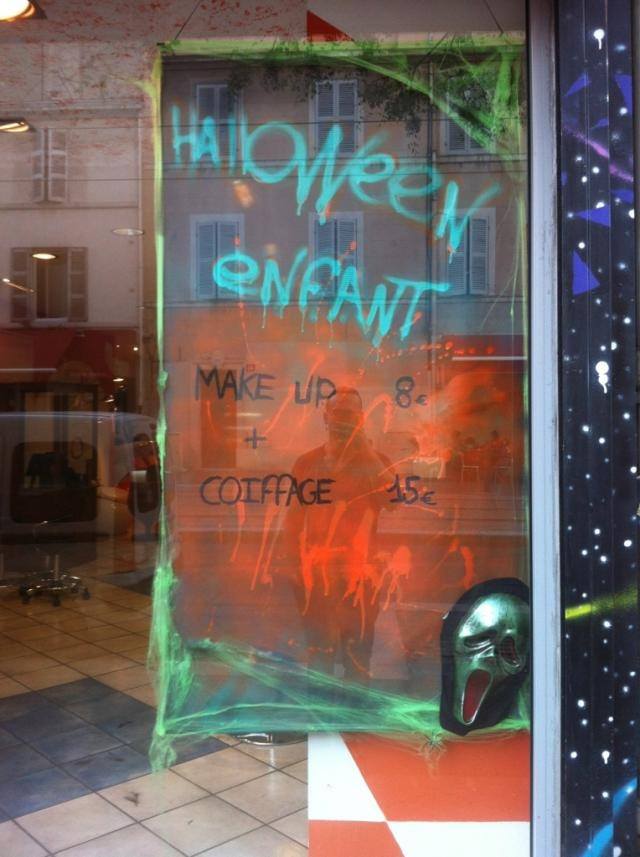 HAlloWeeN
eNFANT
MAKE UP 8€
+
COIFFAGE 15€